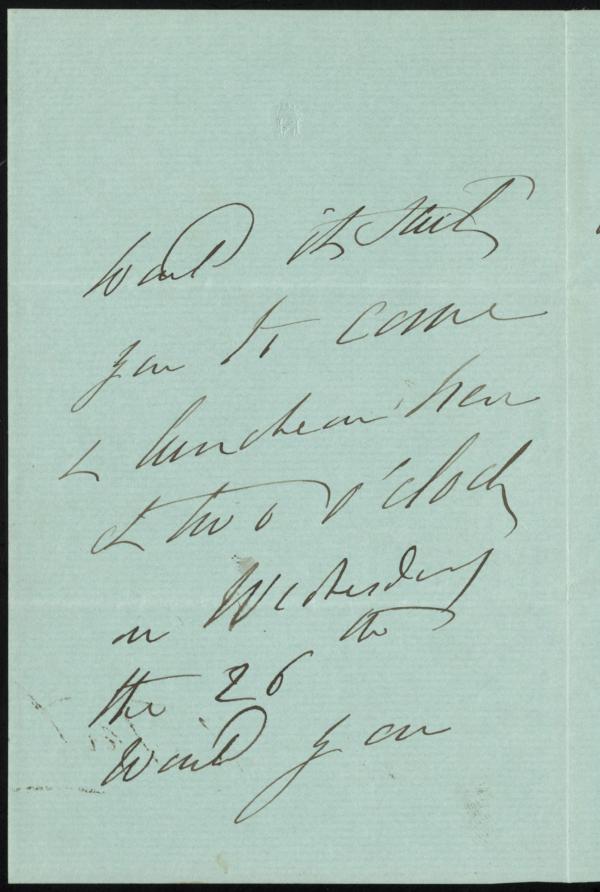 Would it suit
you to come
to luncheon here
at two o'clock
on Wednesday
the 26th
Would you